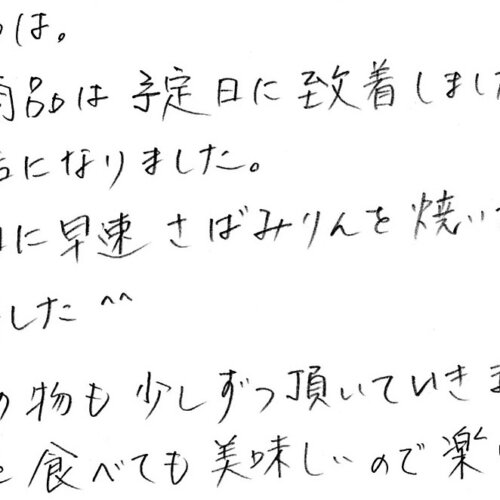 は。
商品は 予定日に致着しました
になりました。
日に早速 さばみりんを 焼い
した ^^
の物も 少しずつ頂いていきま
食べても 美味しいので楽